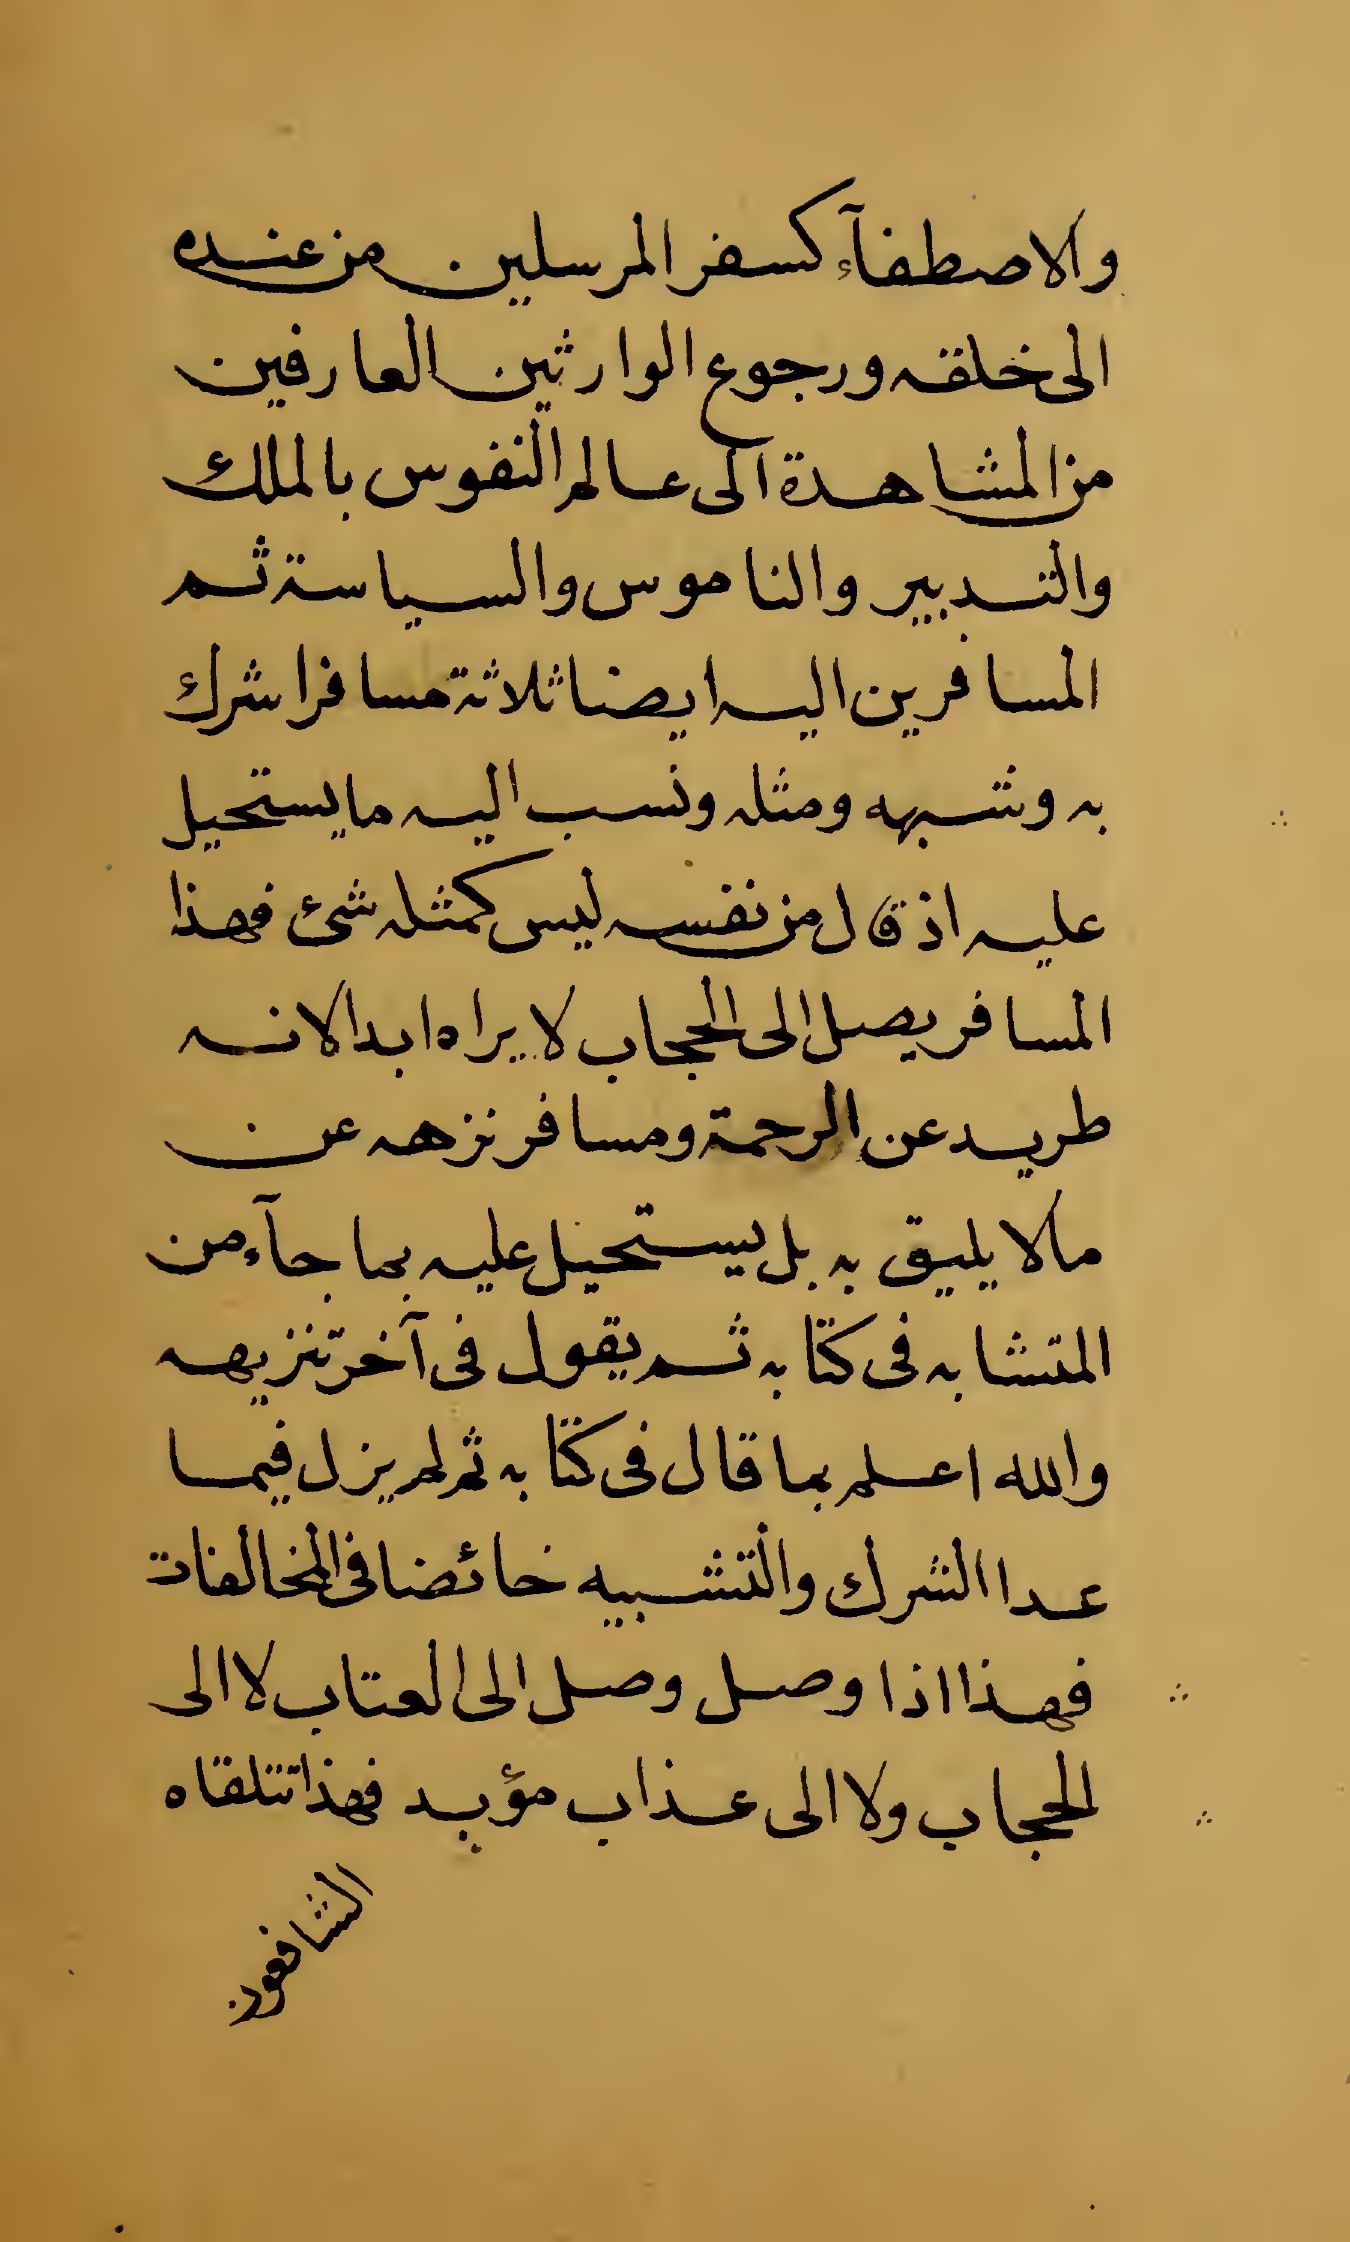 والاصطفآء كسفر المرسلين من عنده
الى خلقه ورجوع الوارثين العارفين
من المشاهدة الى عالم النفوس بالملك
والتدبير والناموس والسياسة ثم
المسافرين اليه ايضا ثلاثة مسافر اشرك
به وشبهه ومثله ونسب اليه ما يستحيل
عليه اذ قال من نفسه ليس كمثله شئ فهذا
المسافر يصل الى الحجاب لا يراه ابدا لانه
طريد عن الرحمة ومسافر نزهه عن
ما لا يليق به بل يستحيل عليه بما جآء من
المتشابه فى كتابه ثم يقول فى آخر تنزيهه
والله اعلم بما قال فى كتابه ثم لم يزل فيما
عدا الشرك والتشبيه خائضا فى المخالفات
فهذا اذا وصل وصل الى العتاب لا الى
الحجاب ولا الى عذاب مؤبد فهذا تتلقاه
الشافعون